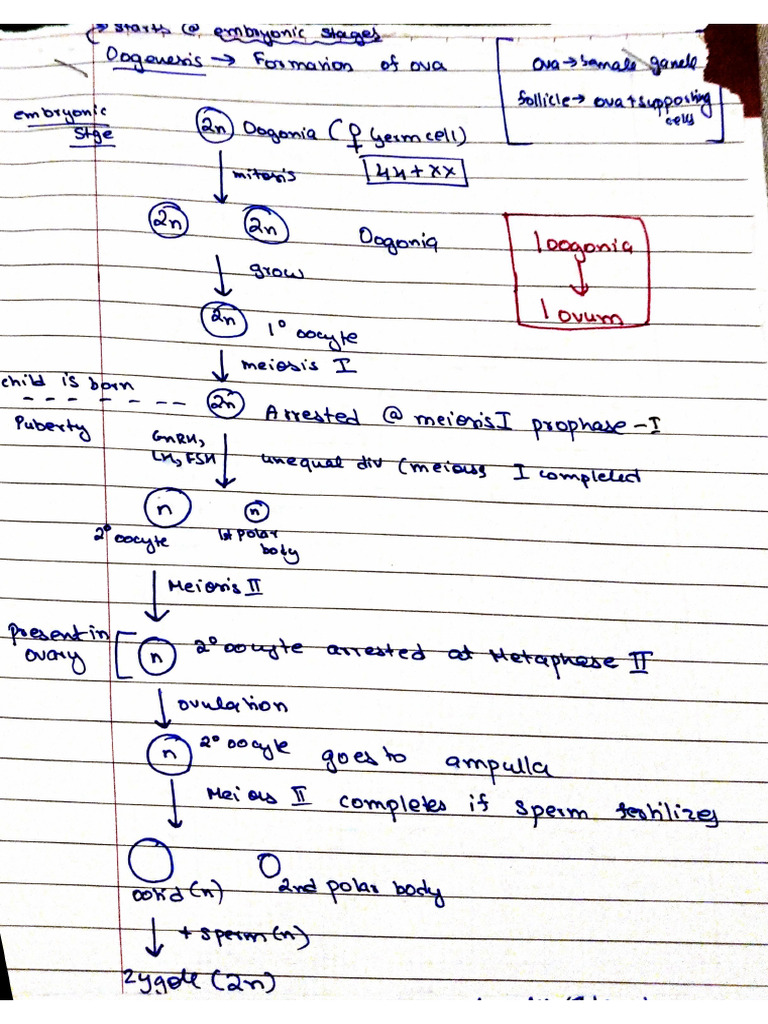 → starts @ embryonic stages
Oogenesis → Formation of ova
ova → female gamete
follicle → ova + supporting
cells
embryonic
stge
2n Oogonia (♀ germ cell)
mitosis
44 + xx
2n 2n Oogonia
1 oogonia
↓
1 ovum
grow
2n 1° oocyte
meiosis I
child is born
2n Arrested @ meiosis I prophase - I
Puberty
GnRH,
LH, FSH
unequal div (meiosis I completed
n n
2° oocyte
1st polar
body
Meiosis II
present in
ovary
n 2° oocyte arrested at Metaphase II
ovulation
n 2° oocyte goes to ampulla
Meiosis II completes if sperm fertilizes
ootid (n)
2nd polar body
+ sperm (n)
zygote (2n)